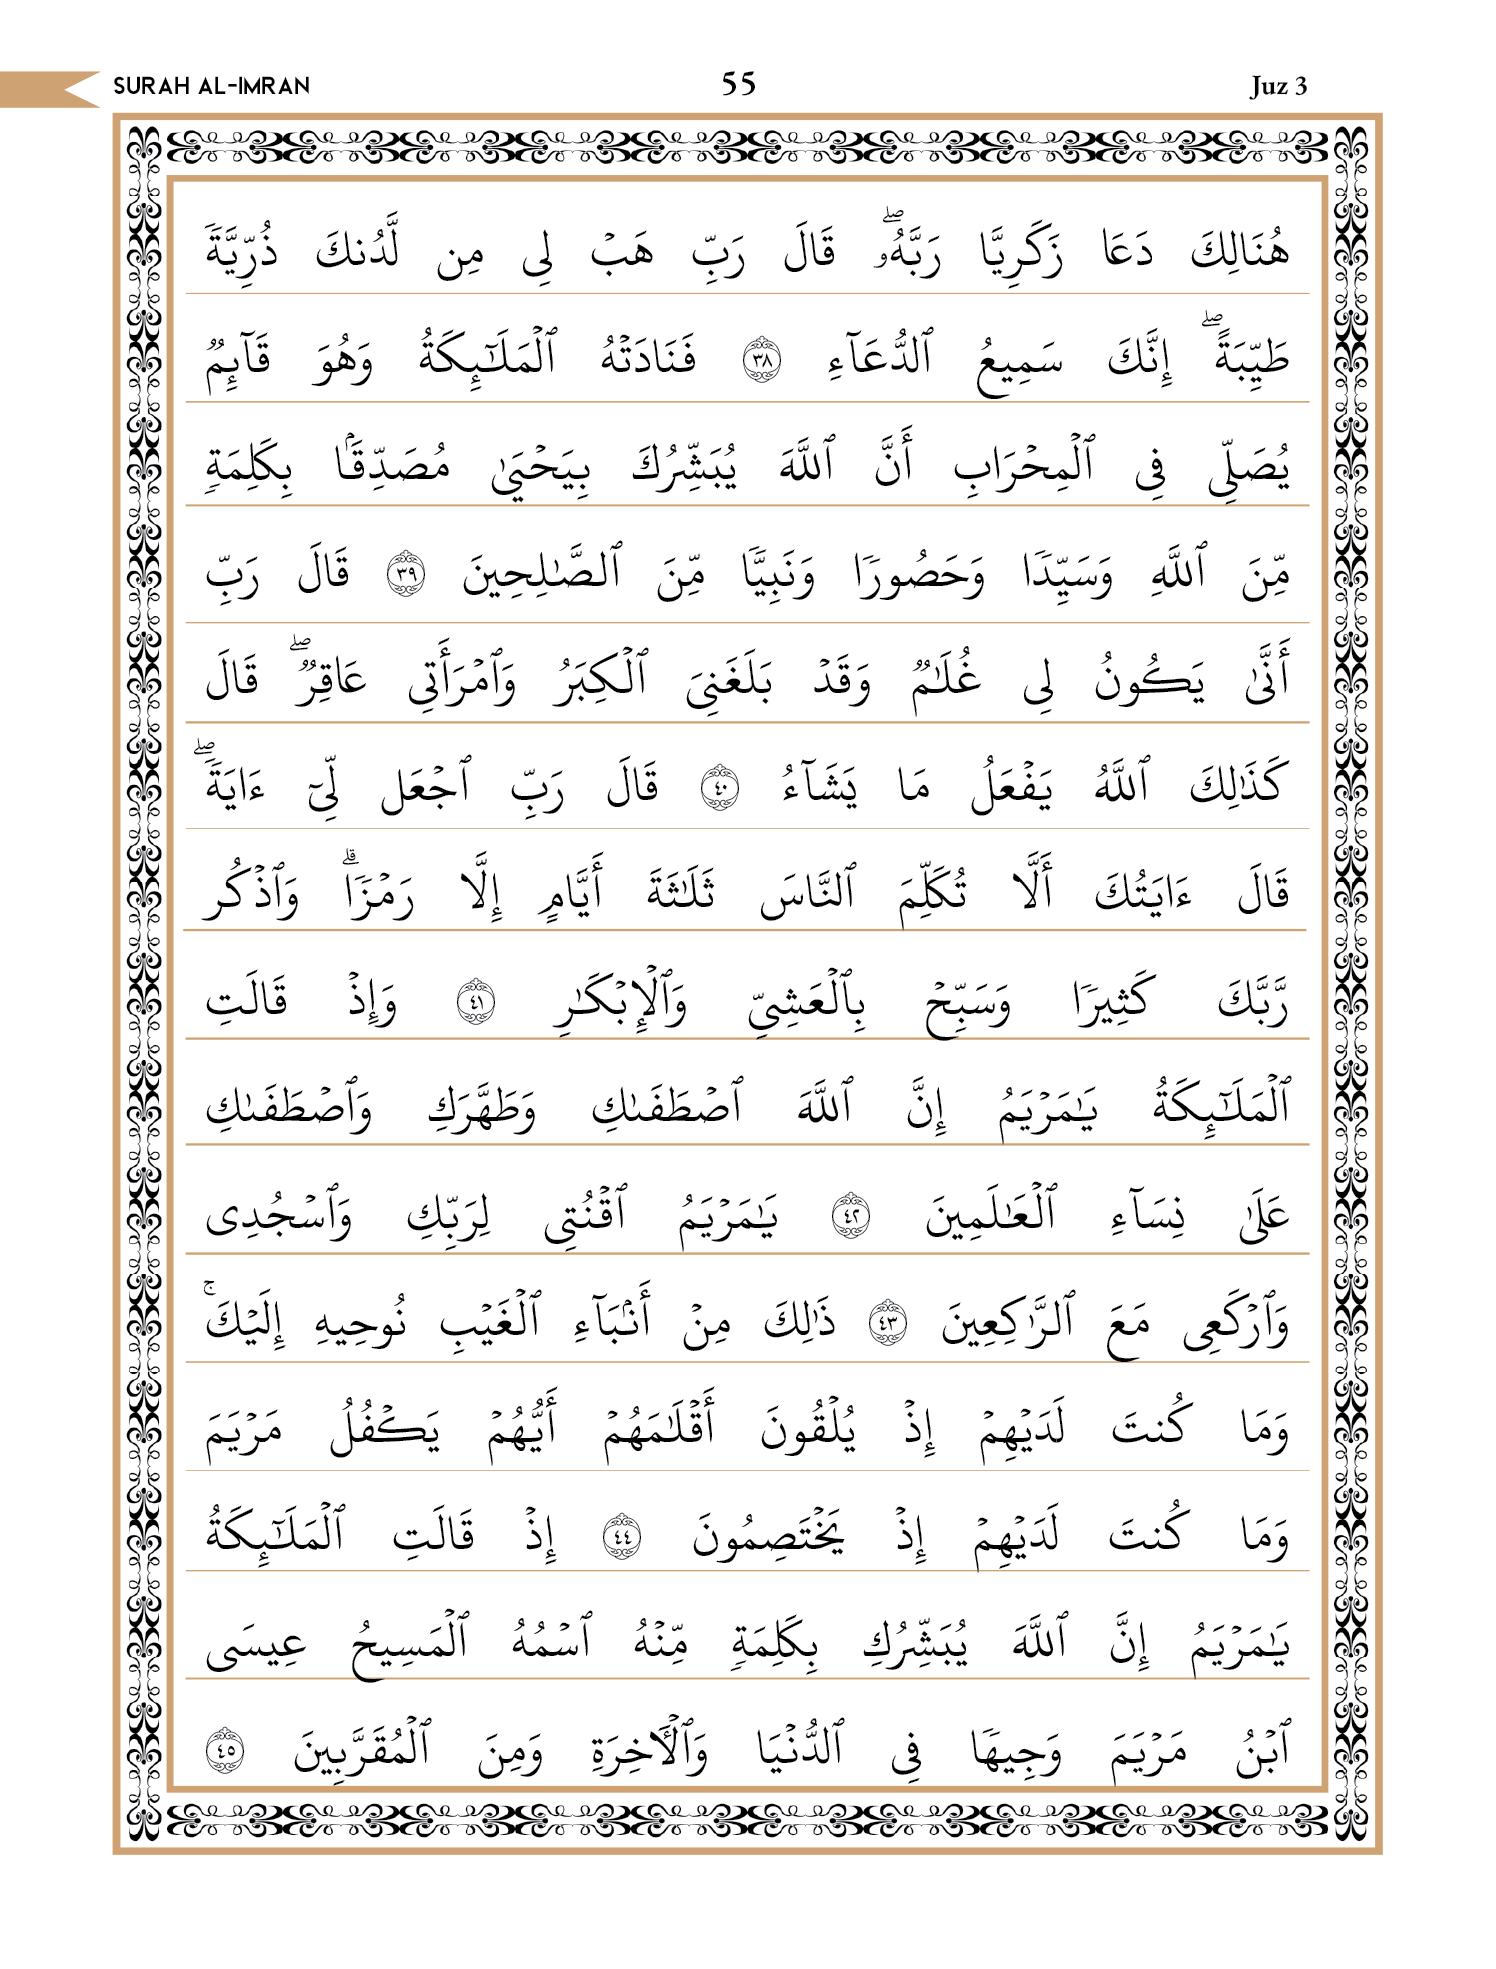 SURAH AL-IMRAN 55 Juz 3
هُنَالِكَ دَعَا زَكَرِيَّا رَبَّهُۥۖ قَالَ رَبِّ هَبْ لِى مِن لَّدُنكَ ذُرِّيَّةًۭ
طَيِّبَةًۖ إِنَّكَ سَمِيعُ ٱلدُّعَآءِ ٣٨ فَنَادَتْهُ ٱلْمَلَـٰٓئِكَةُ وَهُوَ قَآئِمٌۭ
يُصَلِّى فِى ٱلْمِحْرَابِ أَنَّ ٱللَّهَ يُبَشِّرُكَ بِيَحْيَىٰ مُصَدِّقًۢا بِكَلِمَةٍۢ
مِّنَ ٱللَّهِ وَسَيِّدًۭا وَحَصُورًۭا وَنَبِيًّۭا مِّنَ ٱلصَّـٰلِحِينَ ٣٩ قَالَ رَبِّ
أَنَّىٰ يَكُونُ لِى غُلَـٰمٌۭ وَقَدْ بَلَغَنِىَ ٱلْكِبَرُ وَٱمْرَأَتِى عَاقِرٌۭۖ قَالَ
كَذَٰلِكَ ٱللَّهُ يَفْعَلُ مَا يَشَآءُ ٤٠ قَالَ رَبِّ ٱجْعَل لِّىٓ ءَايَةًۭۖ
قَالَ ءَايَتُكَ أَلَّا تُكَلِّمَ ٱلنَّاسَ ثَلَـٰثَةَ أَيَّامٍ إِلَّا رَمْزًۭاۗ وَٱذْكُر
رَّبَّكَ كَثِيرًۭا وَسَبِّحْ بِٱلْعَشِىِّ وَٱلْإِبْكَـٰرِ ٤١ وَإِذْ قَالَتِ
ٱلْمَلَـٰٓئِكَةُ يَـٰمَرْيَمُ إِنَّ ٱللَّهَ ٱصْطَفَىٰكِ وَطَهَّرَكِ وَٱصْطَفَىٰكِ
عَلَىٰ نِسَآءِ ٱلْعَـٰلَمِينَ ٤٢ يَـٰمَرْيَمُ ٱقْنُتِى لِرَبِّكِ وَٱسْجُدِى
وَٱرْكَعِى مَعَ ٱلرَّٰكِعِينَ ٤٣ ذَٰلِكَ مِنْ أَنۢبَآءِ ٱلْغَيْبِ نُوحِيهِ إِلَيْكَۚ
وَمَا كُنتَ لَدَيْهِمْ إِذْ يُلْقُونَ أَقْلَـٰمَهُمْ أَيُّهُمْ يَكْفُلُ مَرْيَمَ
وَمَا كُنتَ لَدَيْهِمْ إِذْ يَخْتَصِمُونَ ٤٤ إِذْ قَالَتِ ٱلْمَلَـٰٓئِكَةُ
يَـٰمَرْيَمُ إِنَّ ٱللَّهَ يُبَشِّرُكِ بِكَلِمَةٍۢ مِّنْهُ ٱسْمُهُ ٱلْمَسِيحُ عِيسَى
ٱبْنُ مَرْيَمَ وَجِيهًۭا فِى ٱلدُّنْيَا وَٱلْـَٔاخِرَةِ وَمِنَ ٱلْمُقَرَّبِينَ ٤٥